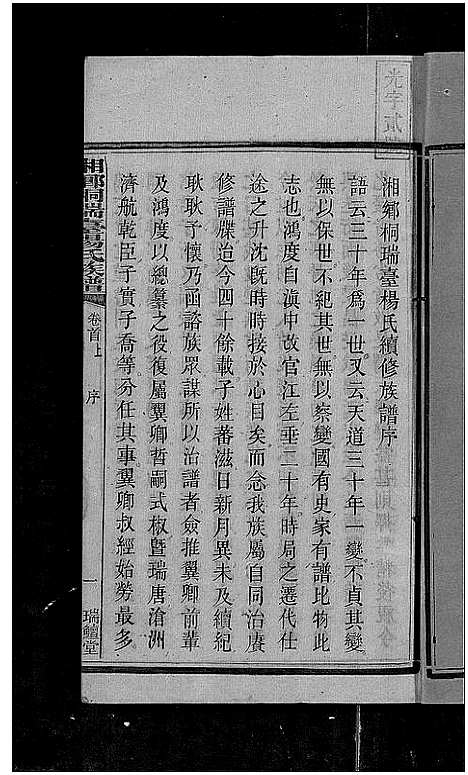 湘鄉桐瑞臺楊氏續修族譜序
語云三十年爲一世又云天道三十年一變不貞其變
無以保世不紀其世無以察變國有史家有譜比物此
志也鴻度自滇中故官江左垂二十年時局之遷代仕
途之升沈旣時時接於心目矣而念我族屬自同治賡
修譜牒迨今四十餘載子姓蕃滋日新月異未及續紀
耿耿予懷乃函諮族眾謀所以治譜者僉推翼卿前輩
及鴻度以纘纂之役復屬翼卿哲嗣式椒暨瑞唐滄洲
濟航乾臣子實子喬等分任其事翼卿叔經始勞最多
湘鄉桐瑞臺楊氏族譜
卷首上
序
一
瑞鱣堂